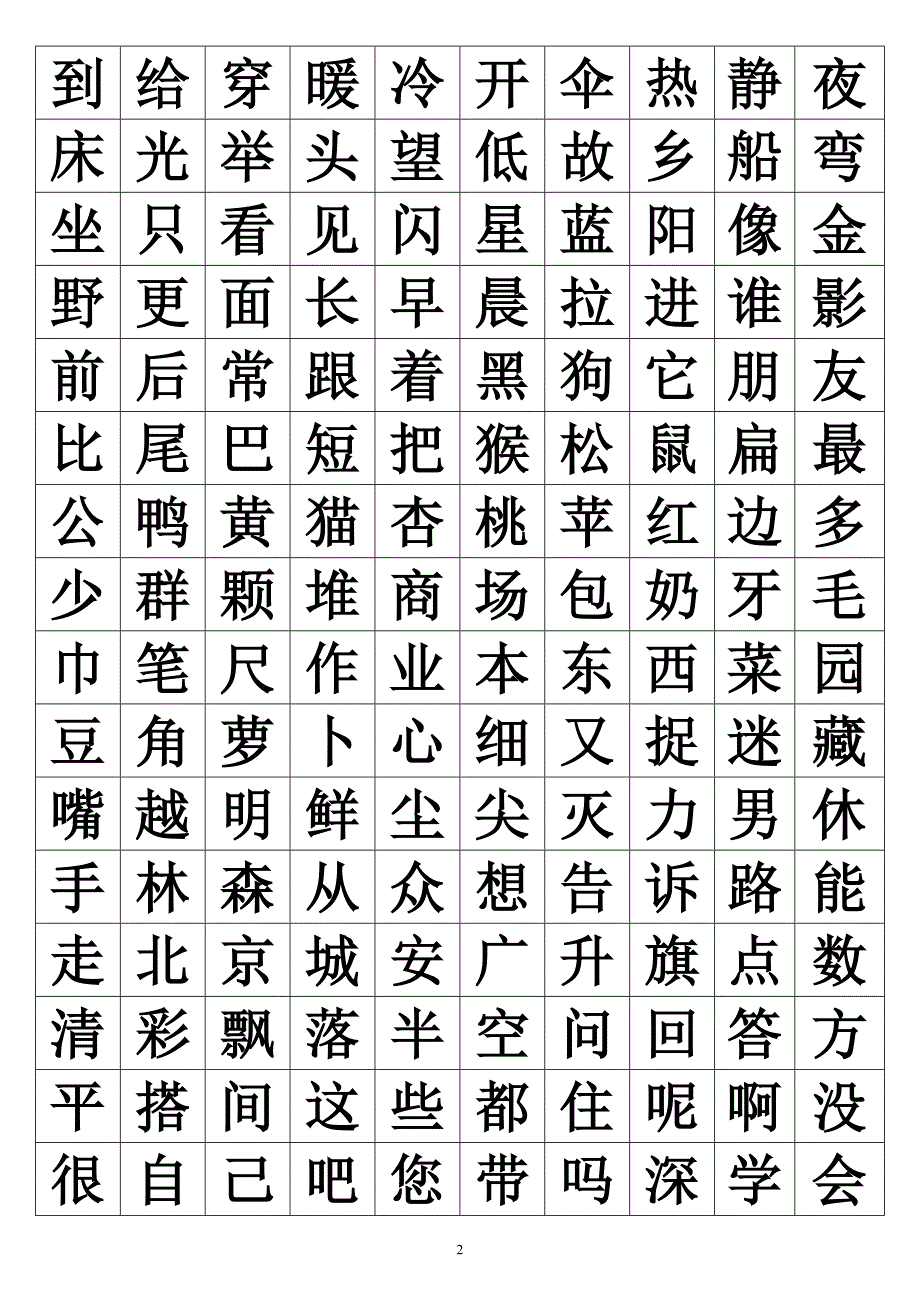 到 给 穿 暖 冷 开 伞 热 静 夜
床 光 举 头 望 低 故 乡 船 弯
坐 只 看 见 闪 星 蓝 阳 像 金
野 更 面 长 早 晨 拉 进 谁 影
前 后 常 跟 着 黑 狗 它 朋 友
比 尾 巴 短 把 猴 松 鼠 扁 最
公 鸭 黄 猫 杏 桃 苹 红 边 多
少 群 颗 堆 商 场 包 奶 牙 毛
巾 笔 尺 作 业 本 东 西 菜 园
豆 角 萝 卜 心 细 又 捉 迷 藏
嘴 越 明 鲜 尘 尖 灭 力 男 休
手 林 森 从 众 想 告 诉 路 能
走 北 京 城 安 广 升 旗 点 数
清 彩 飘 落 半 空 问 回 答 方
平 搭 间 这 些 都 住 呢 啊 没
很 自 己 吧 您 带 吗 深 学 会
2